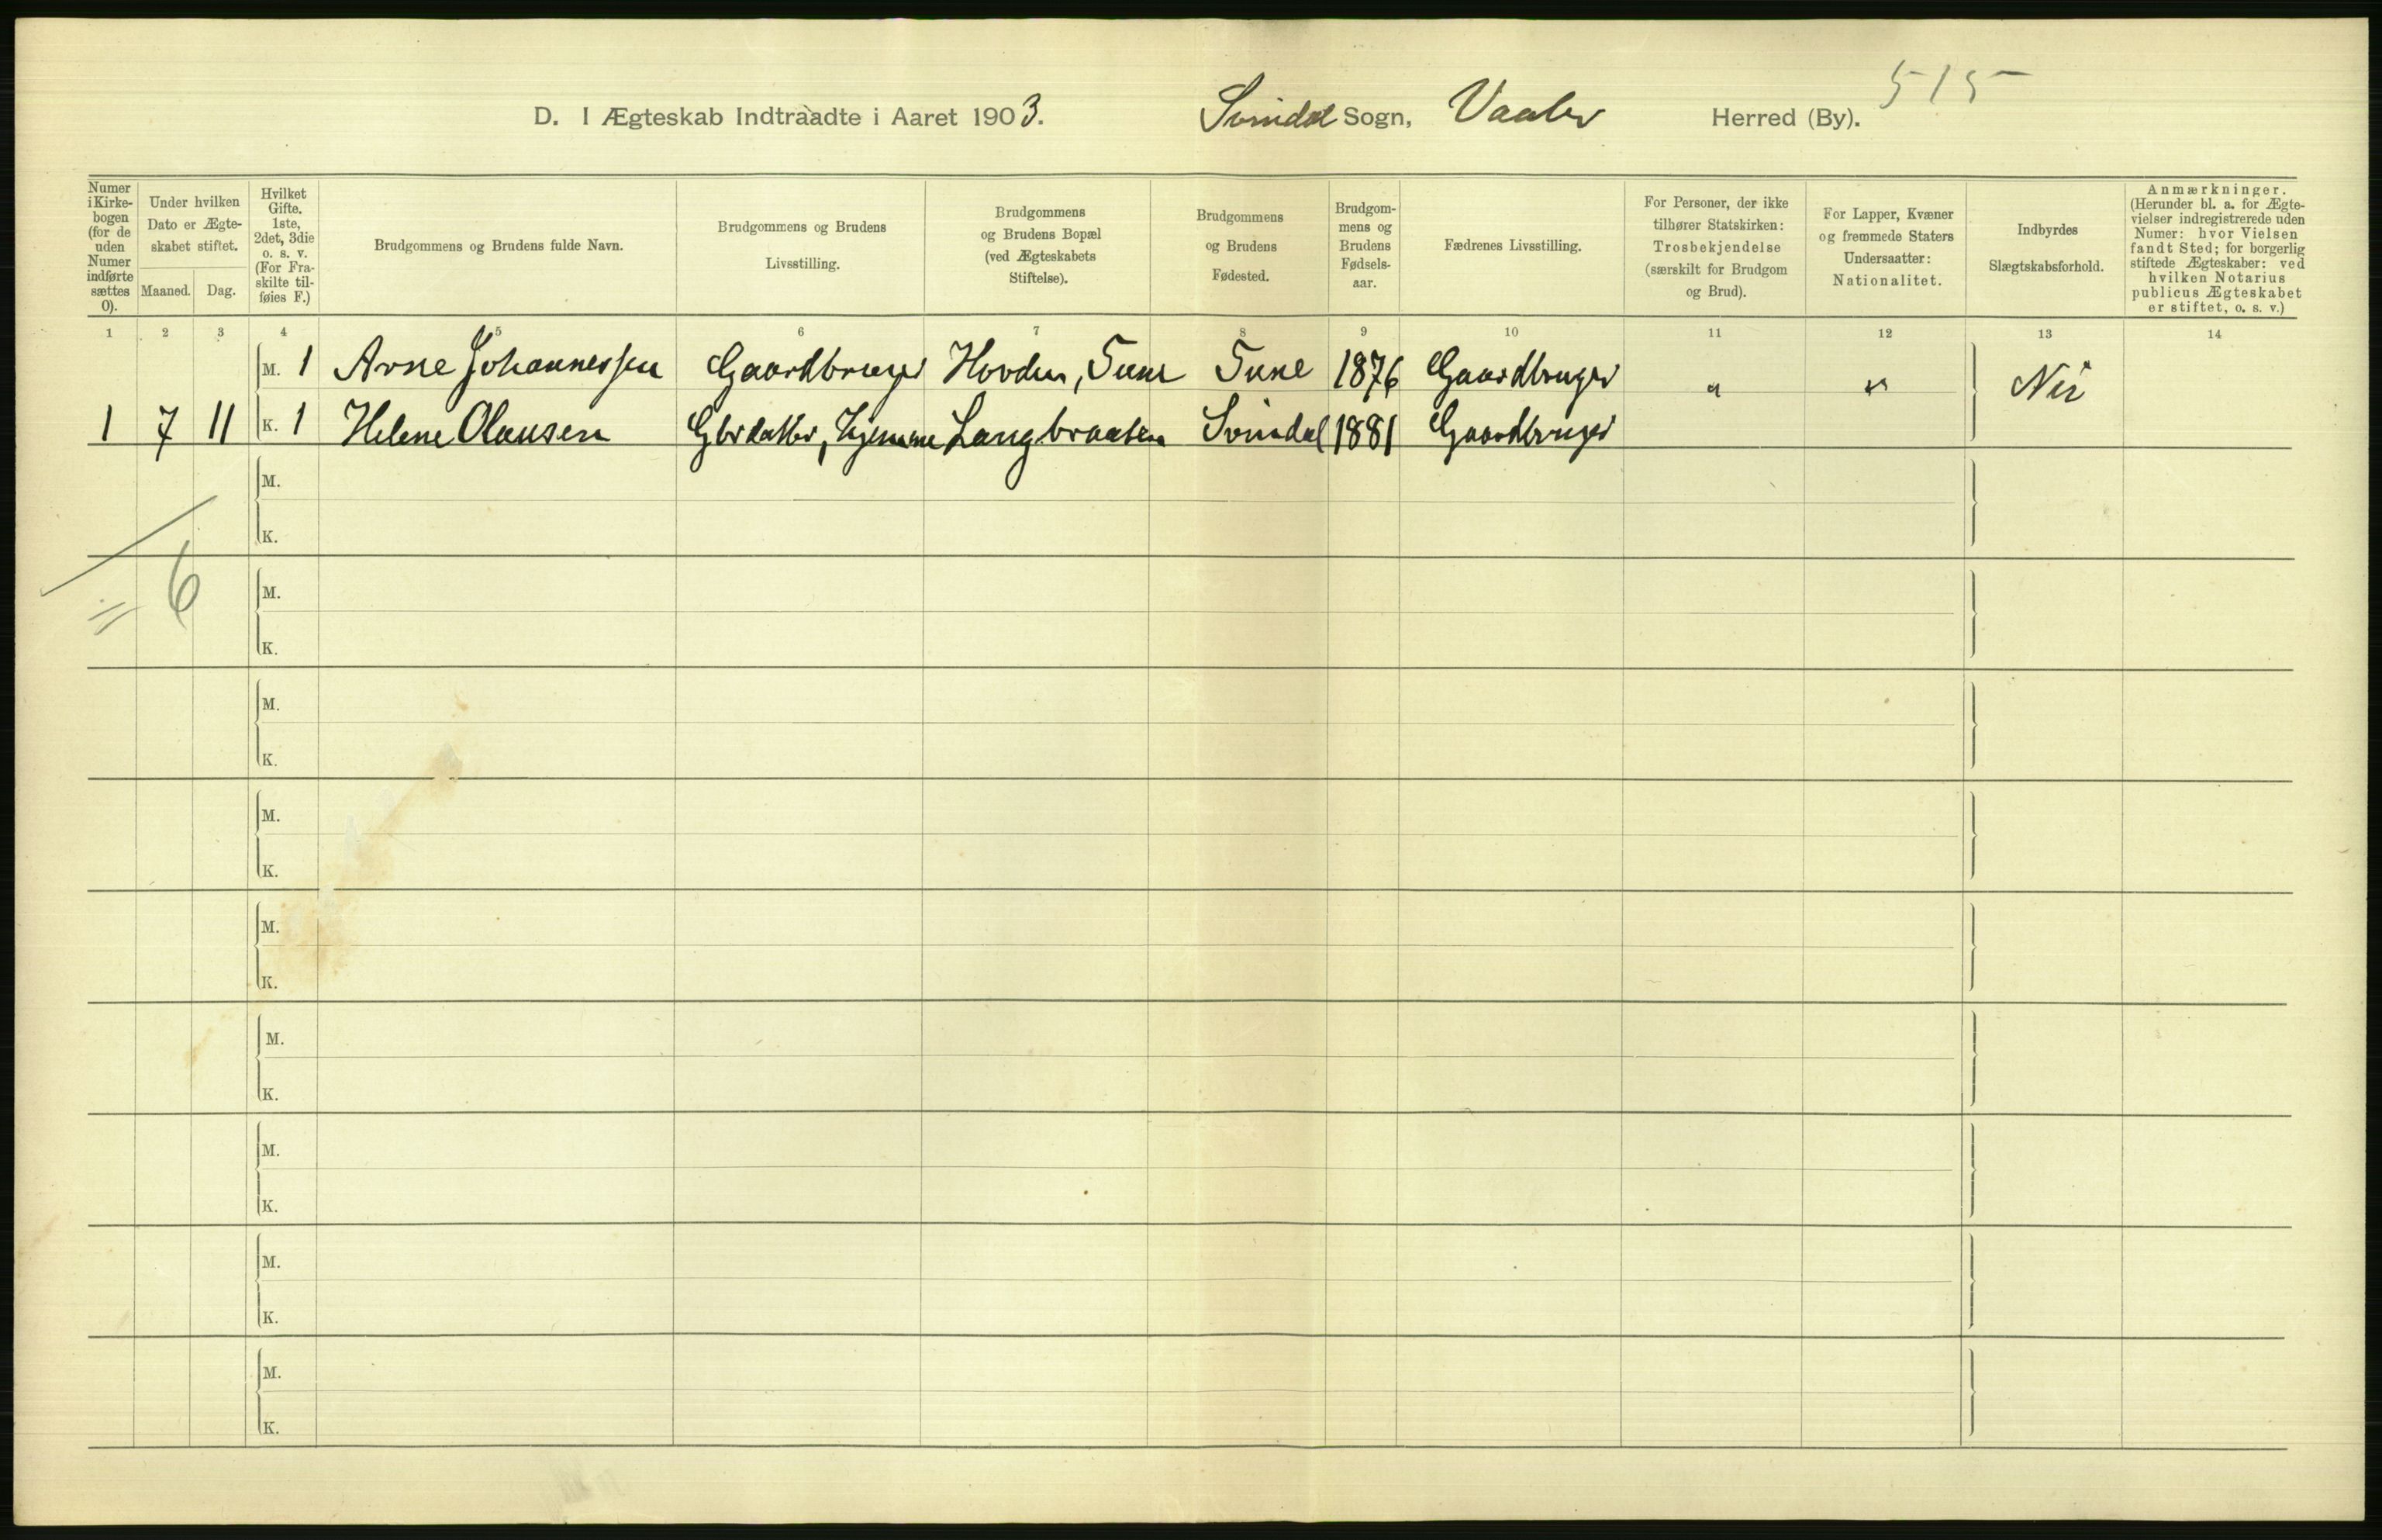 515
D. I Ægteskab Indtraadte i Aaret 1903. Svindal Sogn, Vaaler Herred (By).
Numer
i Kirke-
bogen
(for de
uden
Numer
indførte
sættes
0).
Under hvilken
Dato er Ægte-
skabet stiftet.
Maaned. Dag.
Hvilket
Gifte.
1ste,
2det, 3die
o. s. v.
(For Fra-
skilte til-
føies F.)
Brudgommens og Brudens fulde Navn.
Brudgommens og Brudens
Livsstilling.
Brudgommens
og Brudens Bopæl
(ved Ægteskabets
Stiftelse).
Brudgommens
og Brudens
Fødested.
Brudgom-
mens og
Brudens
Fødsels-
aar.
Fædrenes Livsstilling.
For Personer, der ikke
tilhører Statskirken:
Trosbekjendelse
(særskilt for Brudgom
og Brud).
For Lapper, Kvæner
og fremmede Staters
Undersaatter:
Nationalitet.
Indbyrdes
Slægtskabsforhold.
Anmærkninger.
(Herunder bl. a. for Ægte-
vielser indregistrerede uden
Numer: hvor Vielsen
fandt Sted; for borgerlig
stiftede Ægteskaber: ved
hvilken Notarius
publicus Ægteskabet
er stiftet, o. s. v.)
1 2 3 4 5 6 7 8 9 10 11 12 13 14
M. 1 Arne Johannessen Gaardbruger Hovden, Tune Tune 1876 Gaardbruger " " Nei
1 7 11 K. 1 Helene Olausen Gbrdatter, hjemme Langbraaten Svindal 1881 Gaardbruger
M.
K.
6
M.
K.
M.
K.
M.
K.
M.
K.
M.
K.
M.
K.
M.
K.
M.
K.